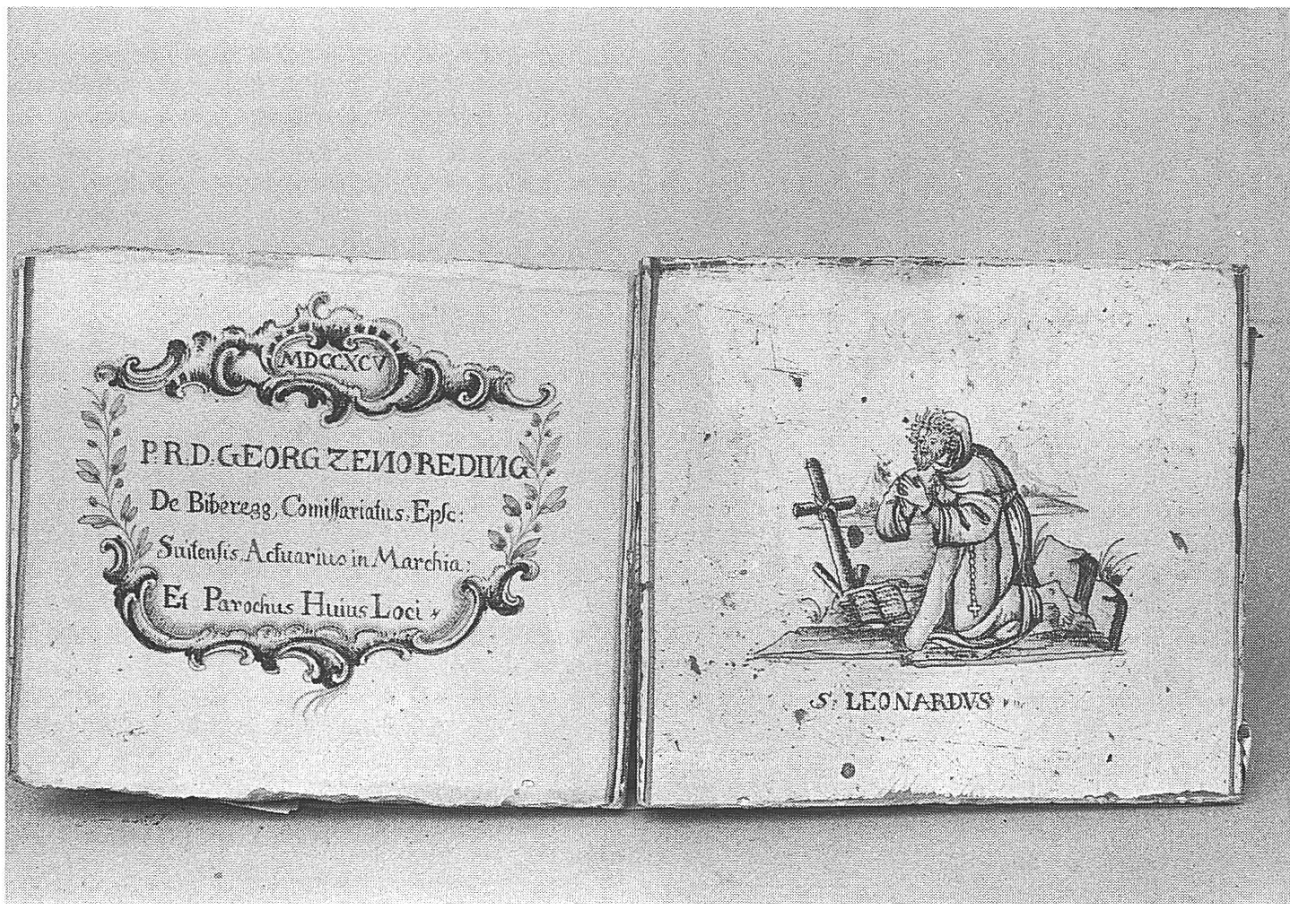 MDCCXCV
P. R. D. GEORG ZENO REDING
De Biberegg, Comissariatus. Epsc:
Suitensis. Actuarius in Marchia:
Et Parochus Huius Loci
S. LEONARDVS